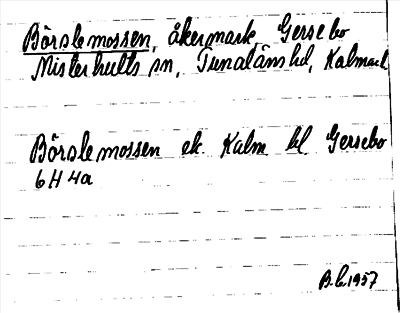 Börslemossen, åkermark Gersebo
Misterhults sn, Tunaläns hd, Kalmar l
Börslemossen ek Kalm bl Gersebo
6H 4a
1957